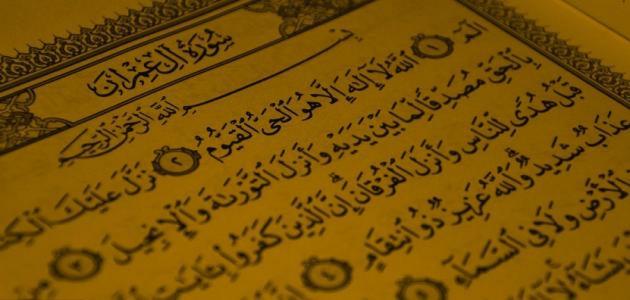 سُورَةُ آلِ عِمْرَانَ
بِسْمِ ٱللَّهِ ٱلرَّحْمَٰنِ ٱلرَّحِيمِ
الٓمٓ ١ ٱللَّهُ لَآ إِلَٰهَ إِلَّا هُوَ ٱلْحَىُّ ٱلْقَيُّومُ ٢ نَزَّلَ عَلَيْكَ
بِٱلْحَقِّ مُصَدِّقًا لِّمَا بَيْنَ يَدَيْهِ وَأَنزَلَ ٱلتَّوْرَىٰةَ وَٱلْإِنجِيلَ ٣ مِن
قَبْلُ هُدًى لِّلنَّاسِ وَأَنزَلَ ٱلْفُرْقَانَ ۗ إِنَّ ٱلَّذِينَ كَفَرُوا۟ بِـَٔايَٰتِ
عَذَابٌ شَدِيدٌ ۗ وَٱللَّهُ عَزِيزٌ ذُو ٱنتِقَامٍ ٤
ٱلْأَرْضِ وَلَا فِى ٱلسَّمَآءِ ٥